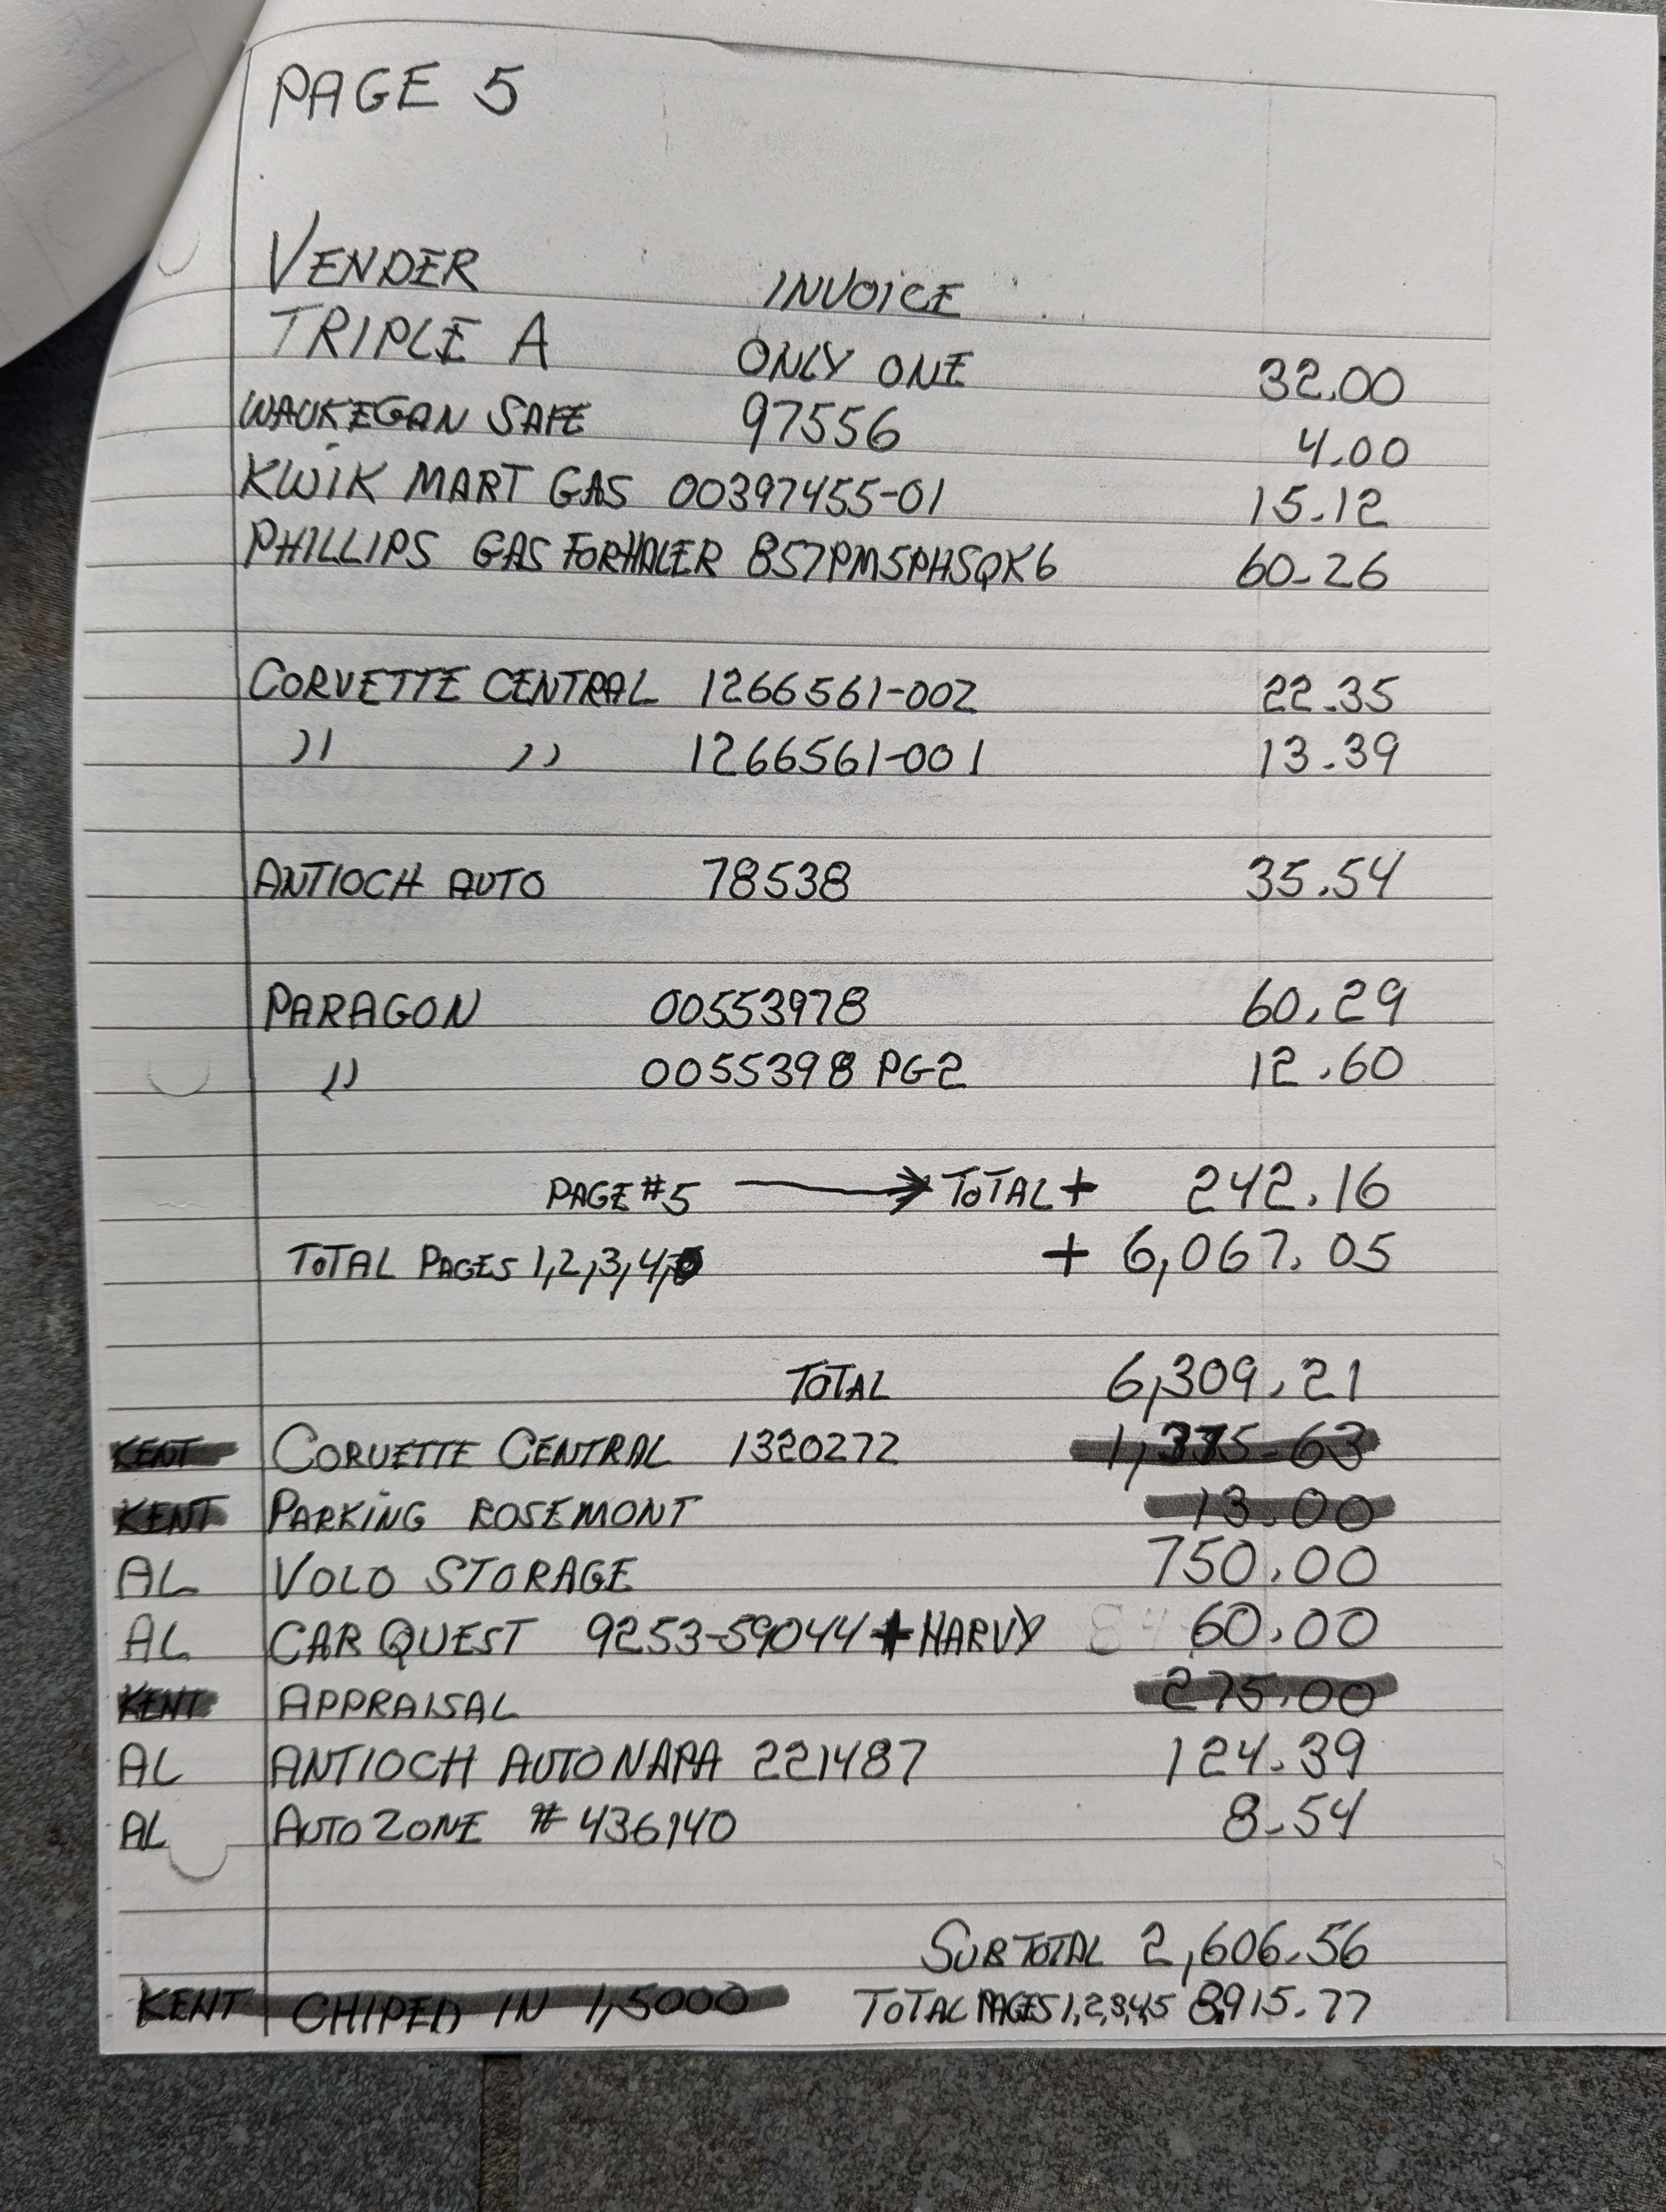 PAGE 5
VENDER INVOICE
TRIPLE A ONLY ONE 32.00
WAUKEGAN SAFE 97556 4.00
KWIK MART GAS 00397455-01 15.12
PHILLIPS GAS FOR HALER 857PM5PHSQK6 60.26
CORVETTE CENTRAL 1266561-002 22.35
" " 1266561-001 13.39
ANTIOCH AUTO 78538 35.54
PARAGON 00553978 60.29
" 0055398 PG2 12.60
PAGE #5 → TOTAL + 242.16
TOTAL PAGES 1,2,3,4, + 6,067.05
TOTAL 6,309.21
KENT CORVETTE CENTRAL 1320272
KENT PARKING ROSEMONT 13.00
AL VOLO STORAGE 750.00
AL CAR QUEST 9253-59044 + HARVY 60.00
KENT APPRAISAL 275.00
AL ANTIOCH AUTO NAPA 221487 124.39
AL AUTO ZONE # 436140 8.54
SUBTOTAL 2,606.56
KENT CHIPED IN 1,5000 TOTAL PAGES 1,2,3,4,5 8,915.77